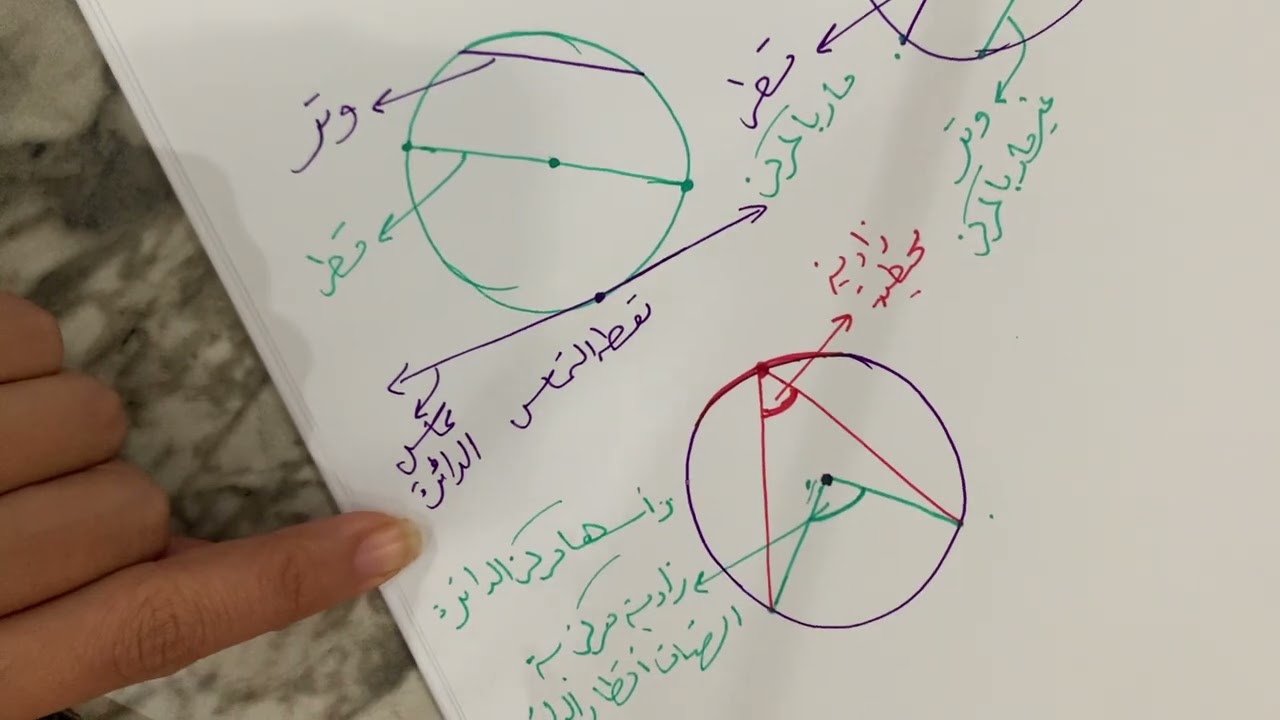 وتر
قطر
قطر
مار بالمركز
وتر
غير مار بالمركز
نقطة التماس
مماس
الدائرة
زاوية
محيطية
رأسها مركز الدائرة
زاوية مركزية